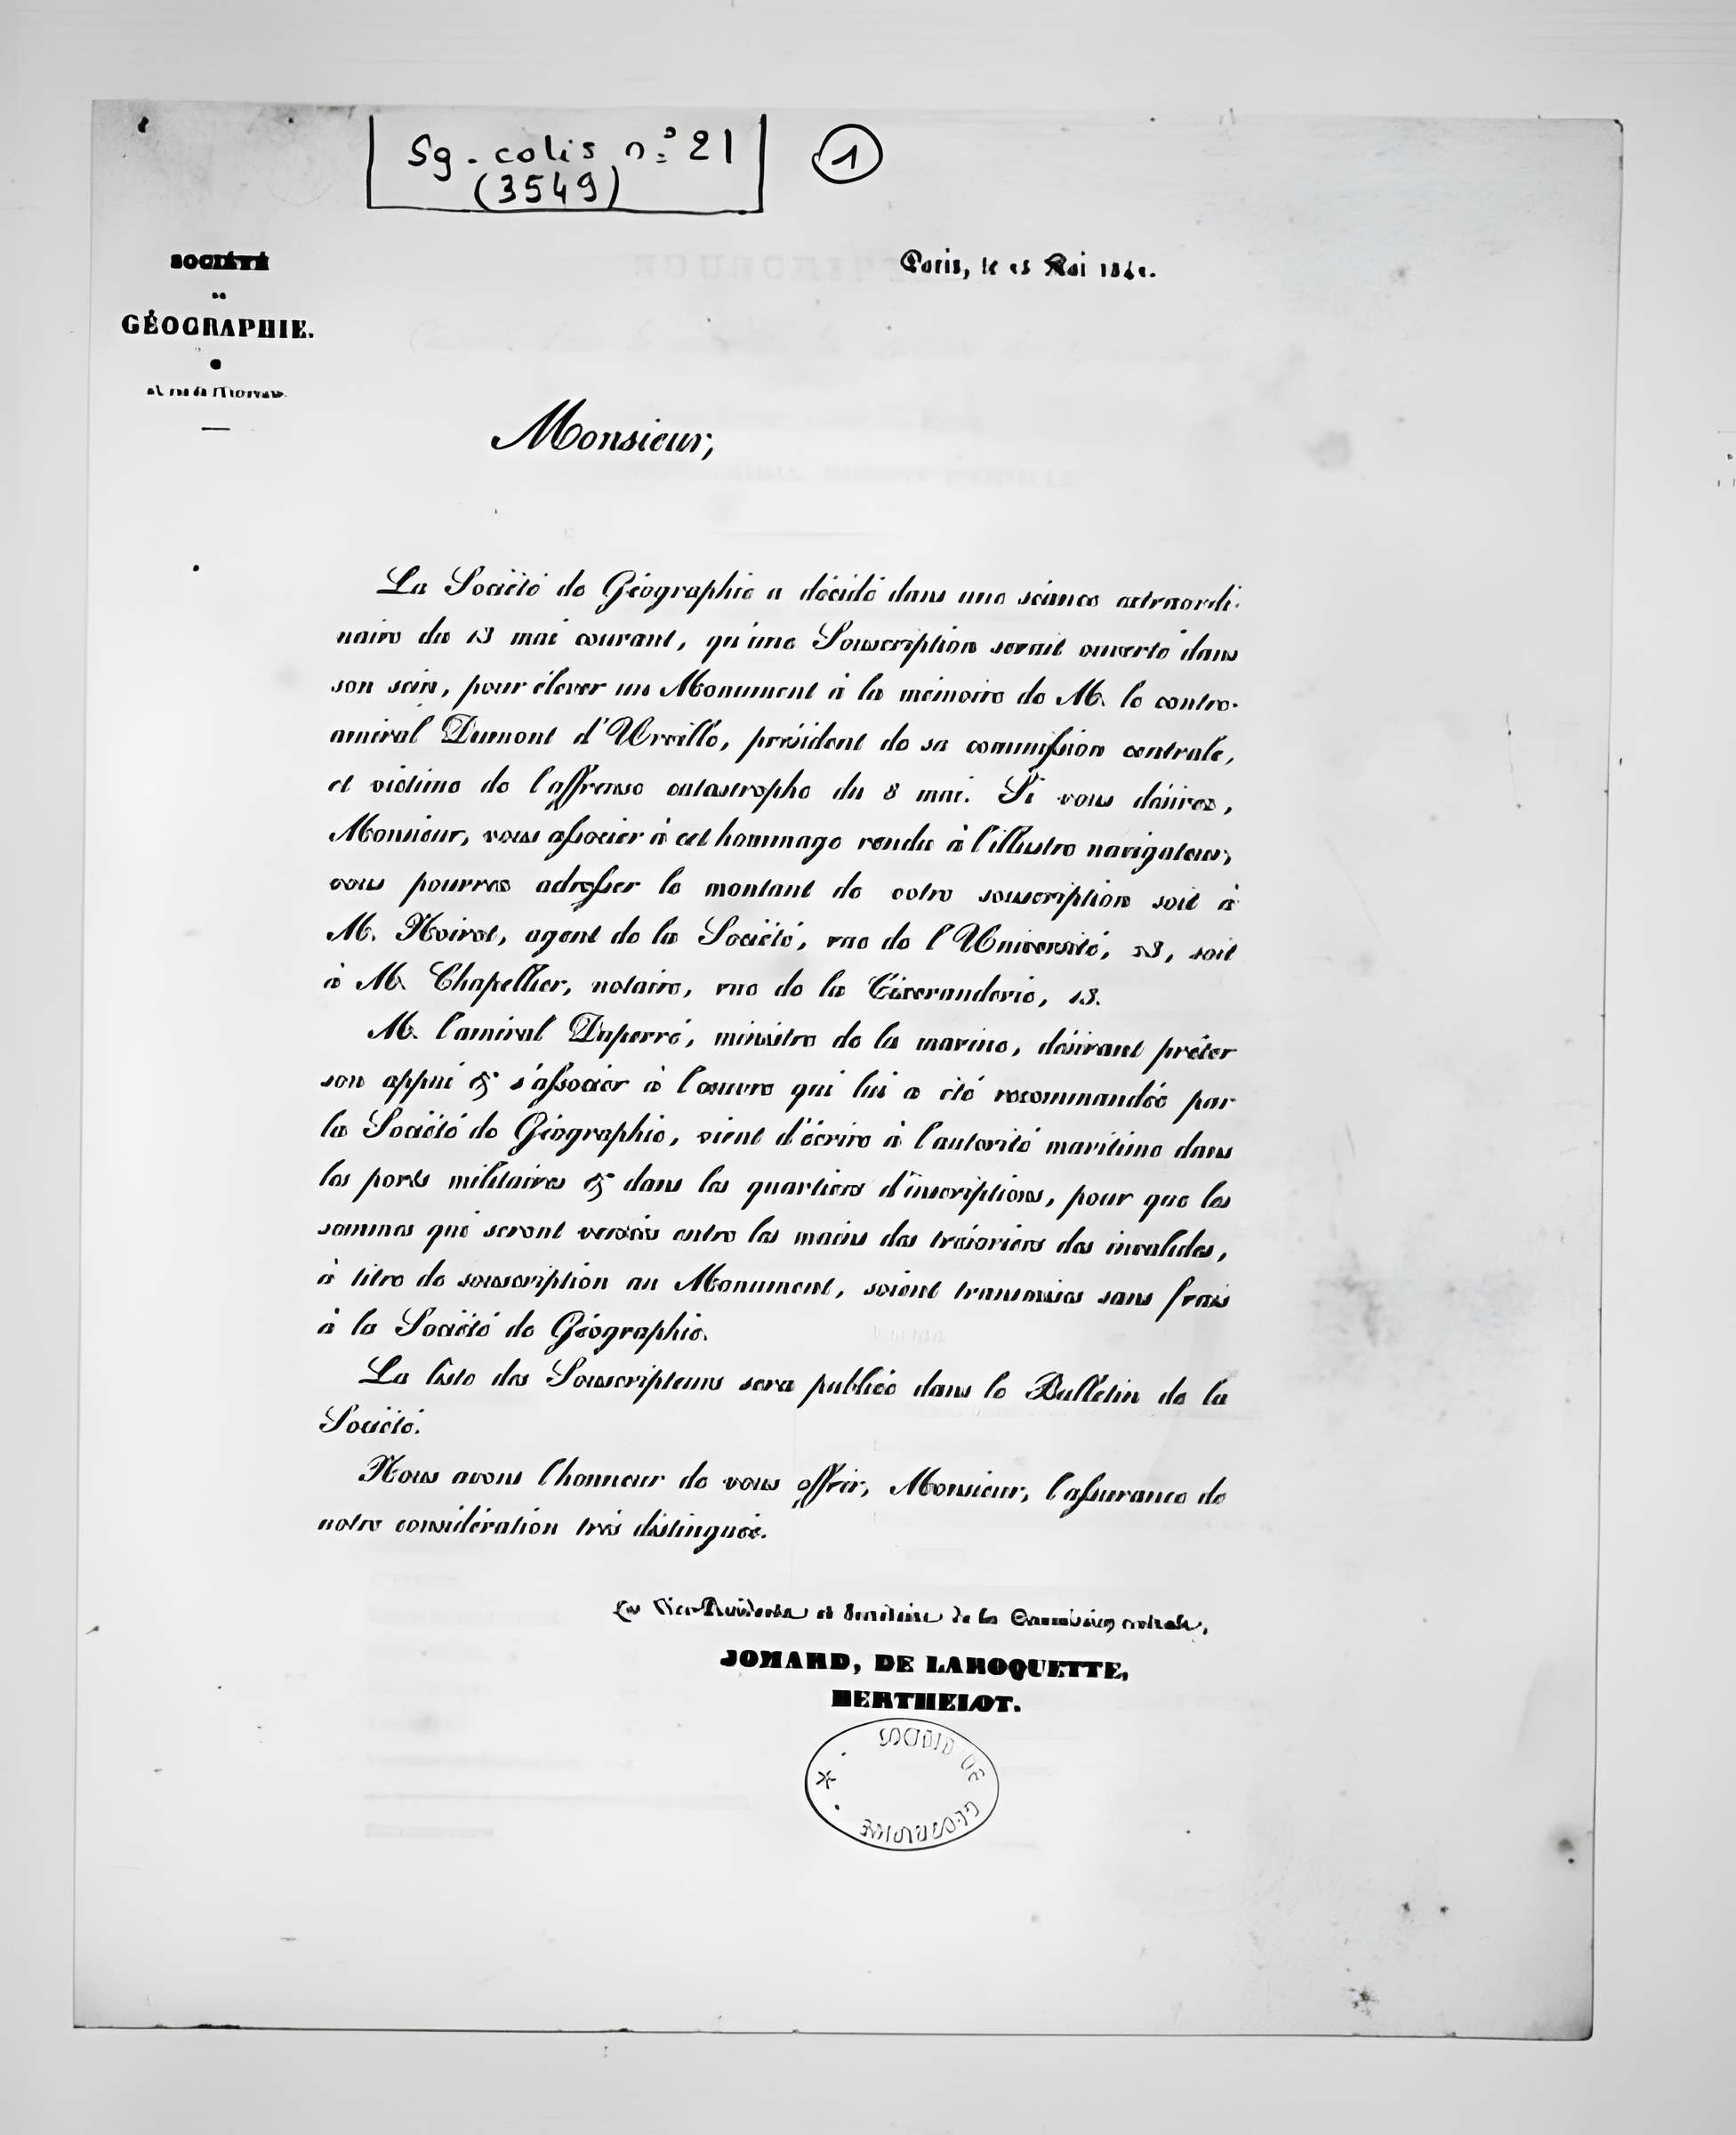 Sg. colis n.º 21
(3549)
1
SOCIÉTÉ
DE
GÉOGRAPHIE.
Paris, le Mai
Monsieur,
La Société de Géographie a décidé dans une séance extraordi-
naire du 13 mai courant, qu'une Souscription serait ouverte dans
son sein, pour élever un Monument à la mémoire de M. le contre-
amiral Dumont d'Urville, président de sa commission centrale,
et victime de l'affreuse catastrophe du 8 mai. Si vous désirez,
Monsieur, vous associer à cet hommage rendu à l'illustre navigateur,
vous pourrez adresser le montant de votre souscription soit à
M. Noirot, agent de la Société, rue de l'Université, 23, soit
à M. Chapellier, notaire, rue de la Tixeranderie, 13.
M. l'amiral Duperré, ministre de la marine, désirant prêter
son appui & s'associer à l'œuvre qui lui a été recommandée par
la Société de Géographie, vient d'écrire à l'autorité maritime dans
les ports militaires & dans les quartiers d'inscriptions, pour que les
sommes qui seront versées entre les mains des trésoriers des invalides,
à titre de souscription au Monument, soient transmises sans frais
à la Société de Géographie.
La liste des Souscripteurs sera publiée dans le Bulletin de la
Société.
Nous avons l'honneur de vous offrir, Monsieur, l'assurance de
notre considération très distinguée.
Les Vice-Présidents et Secrétaire de la Commission centrale,
JOMARD, DE LAROQUETTE,
BERTHELOT.
SOCIÉTÉ DE GÉOGRAPHIE